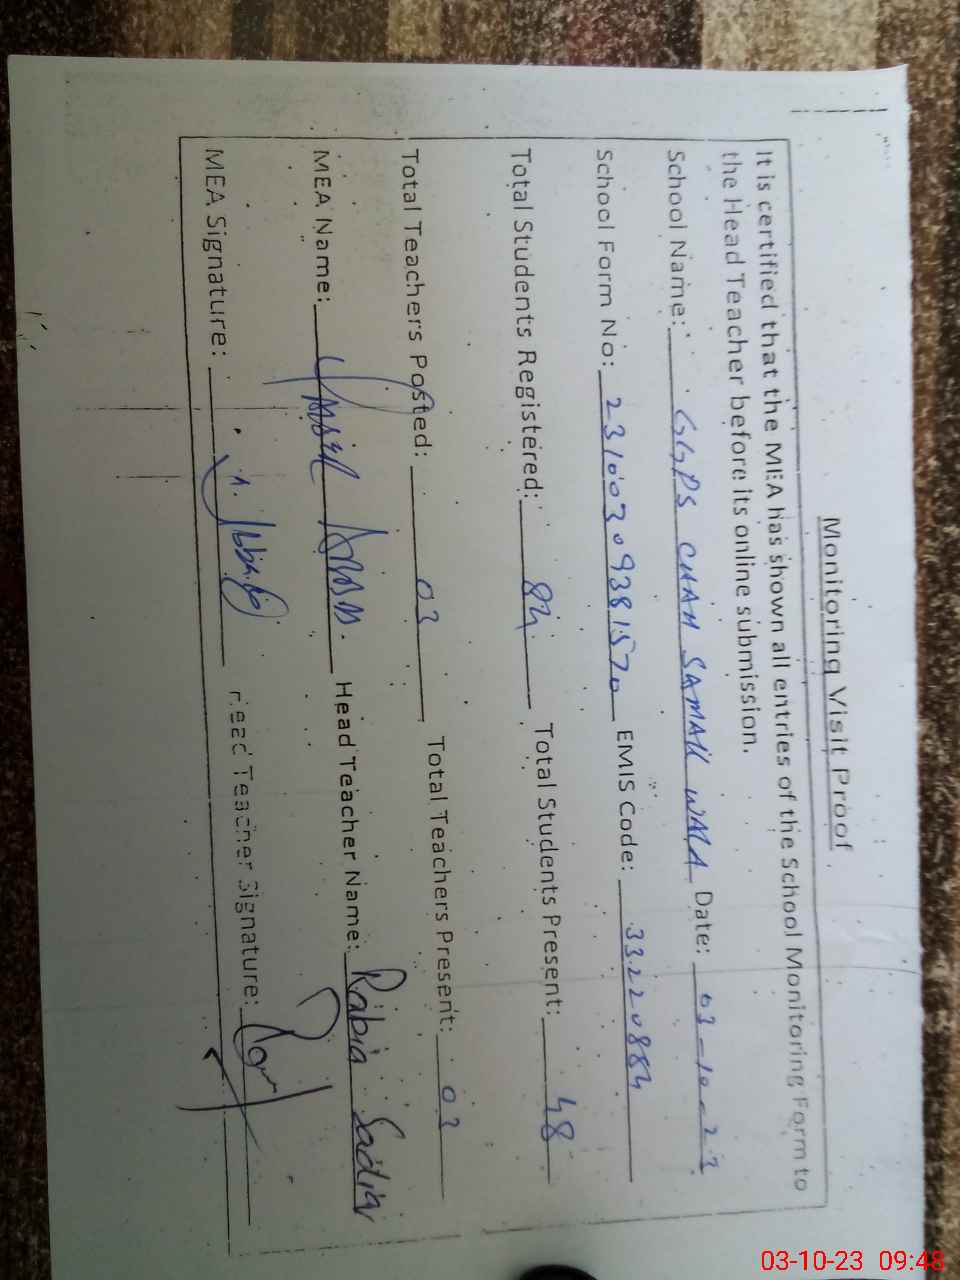 Monitoring Visit Proof
It is certified that the MEA has shown all entries of the School Monitoring Form to
the Head Teacher before its online submission.
School Name: GGPS CHAH SAMALL WALA Date: 03-10-23
School Form No: 23100309381570 EMIS Code: 33220884
Total Students Registered: 84 Total Students Present: 48
Total Teachers Posted: 03 Total Teachers Present: 03
MEA Name: Head Teacher Name: Rabia Sadia
MEA Signature: Head Teacher Signature:
03-10-23 09:48